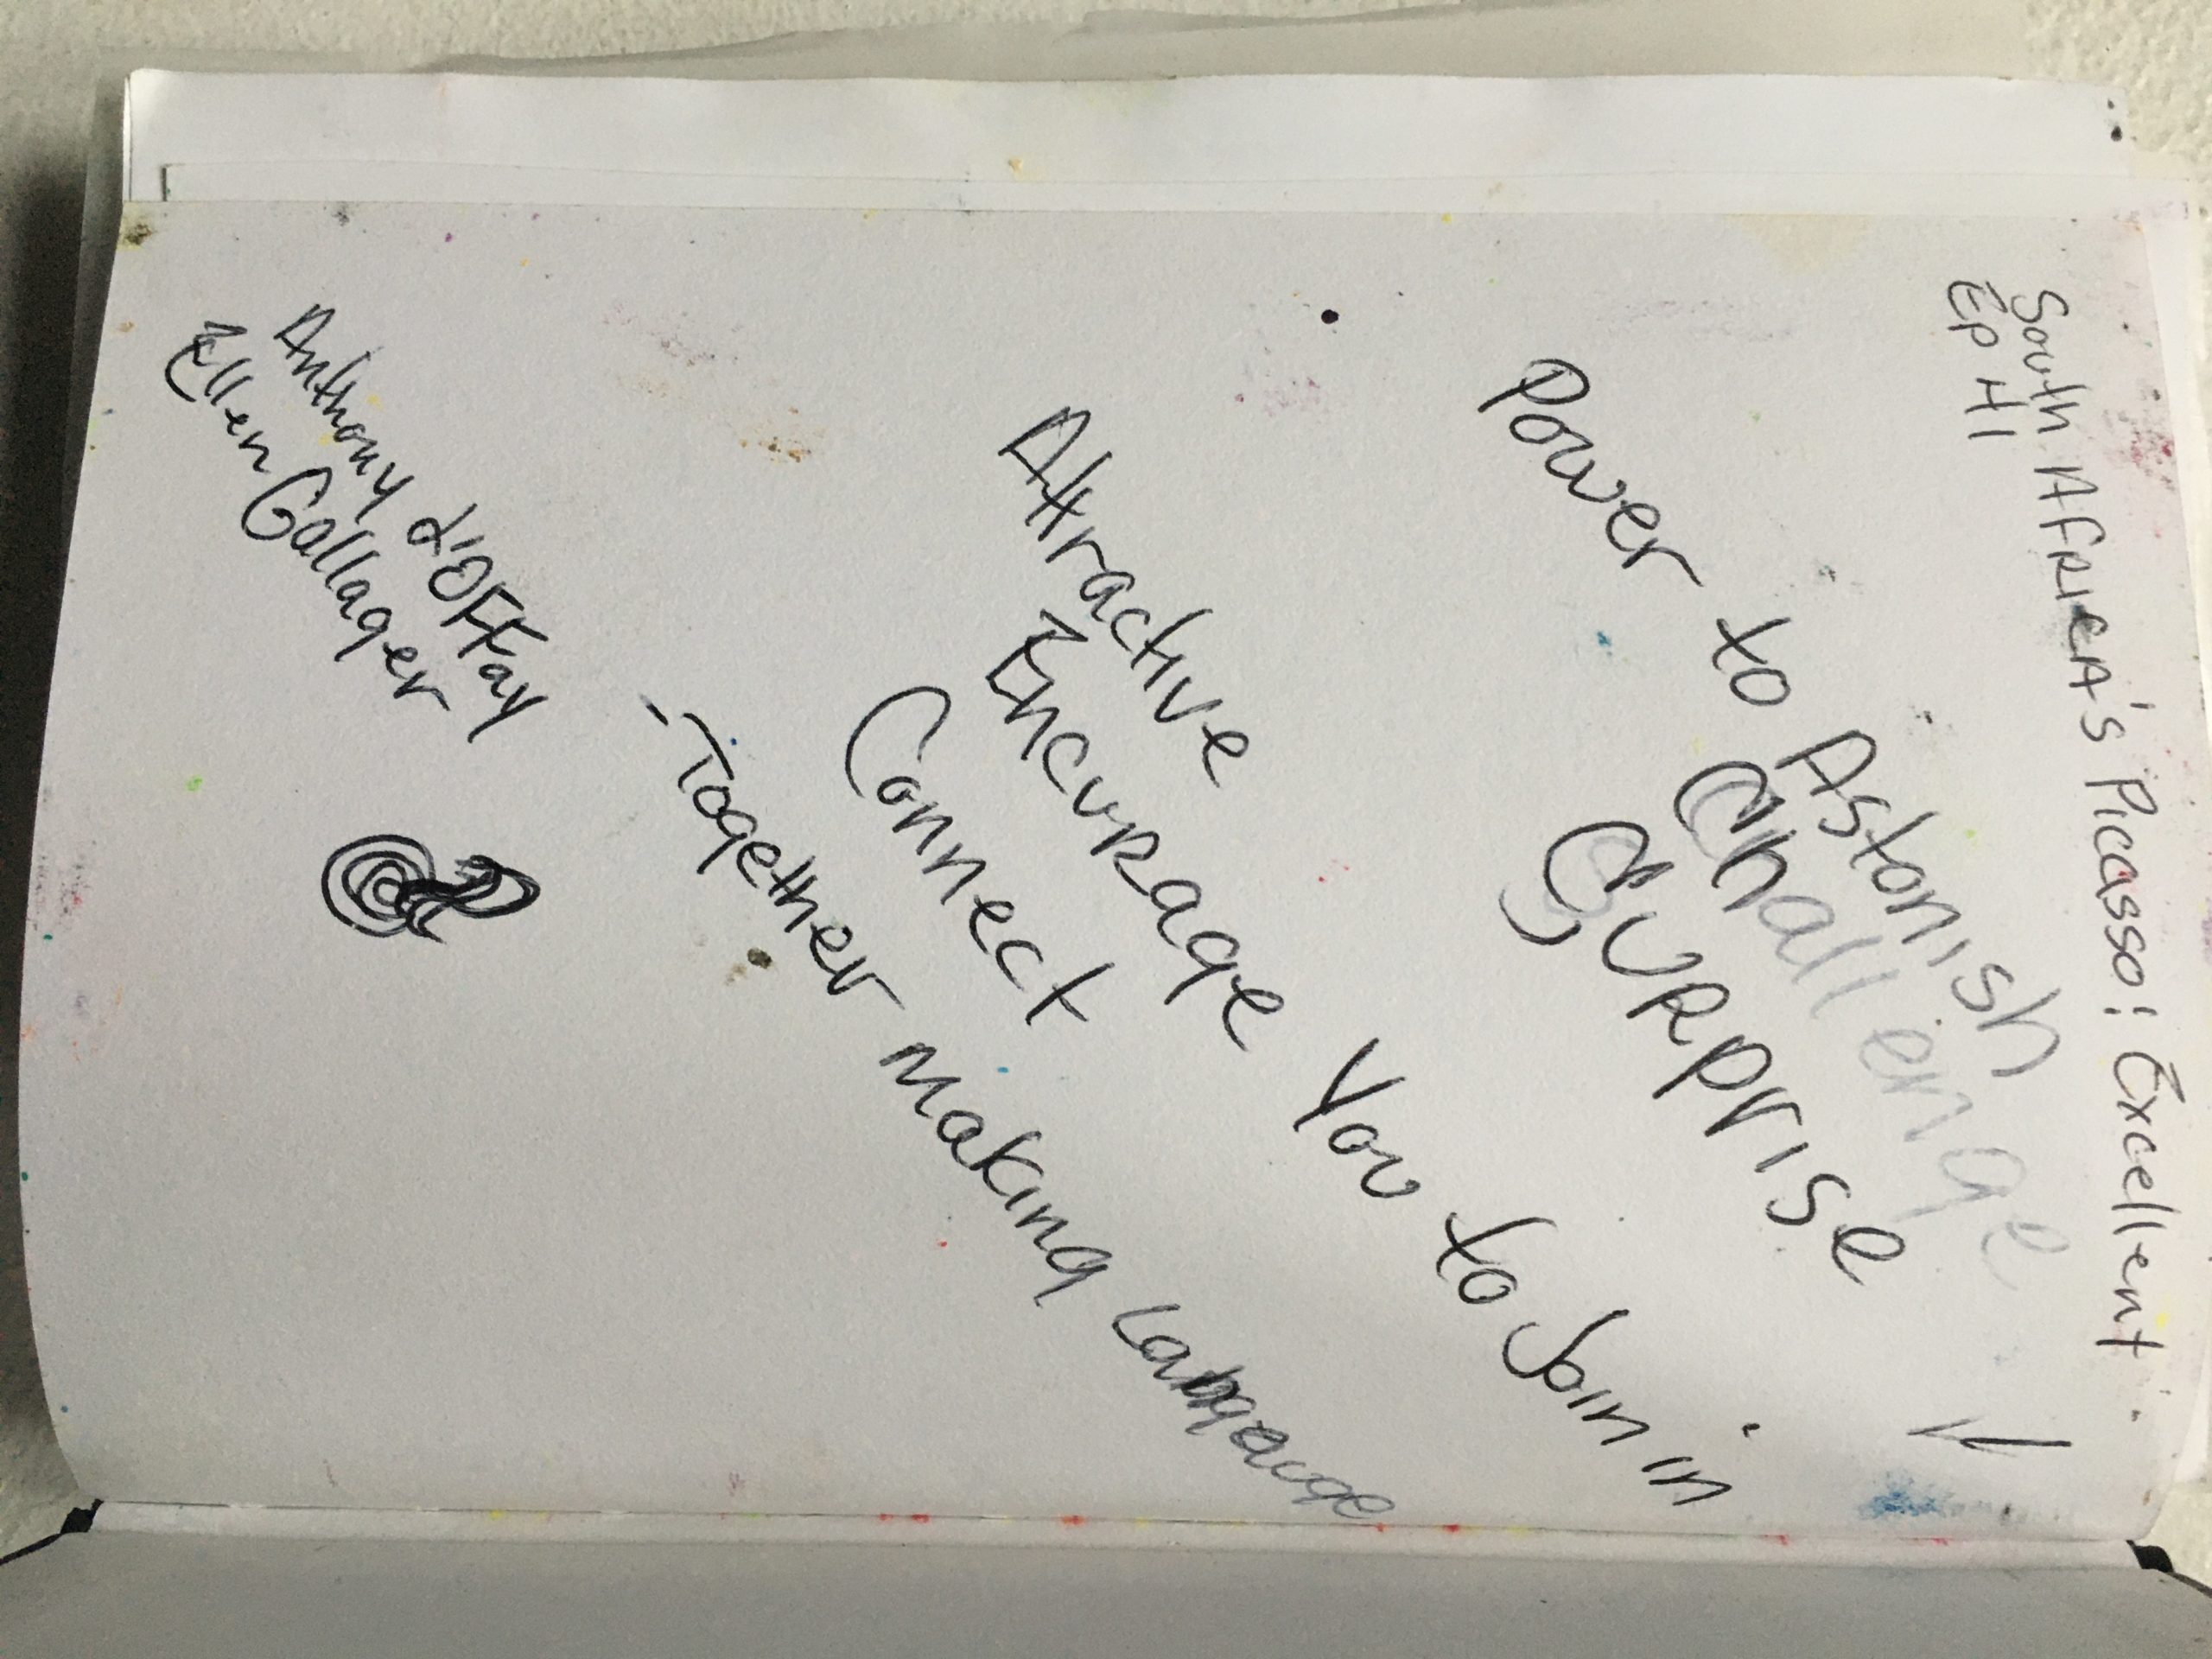 South AFRICA's Picasso: Excellent
Ep H1
Power to Astonish
Challenge
SURPRISE
Attractive
Encurage You to Join in
Connect
-Together making Langauge
Anthony d'OFFay
Ellen Gallager